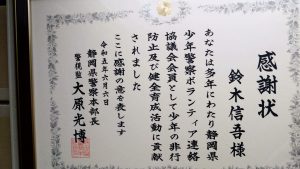 感謝状
鈴木信吾様
あなたは多年にわたり静岡県
少年警察ボランティア連絡
協議会会員として少年の非行
防止及び健全育成活動に貢献
されました
ここに感謝の意を表します
令和五年六月六日
静岡県警察本部長
警視監 大原光博